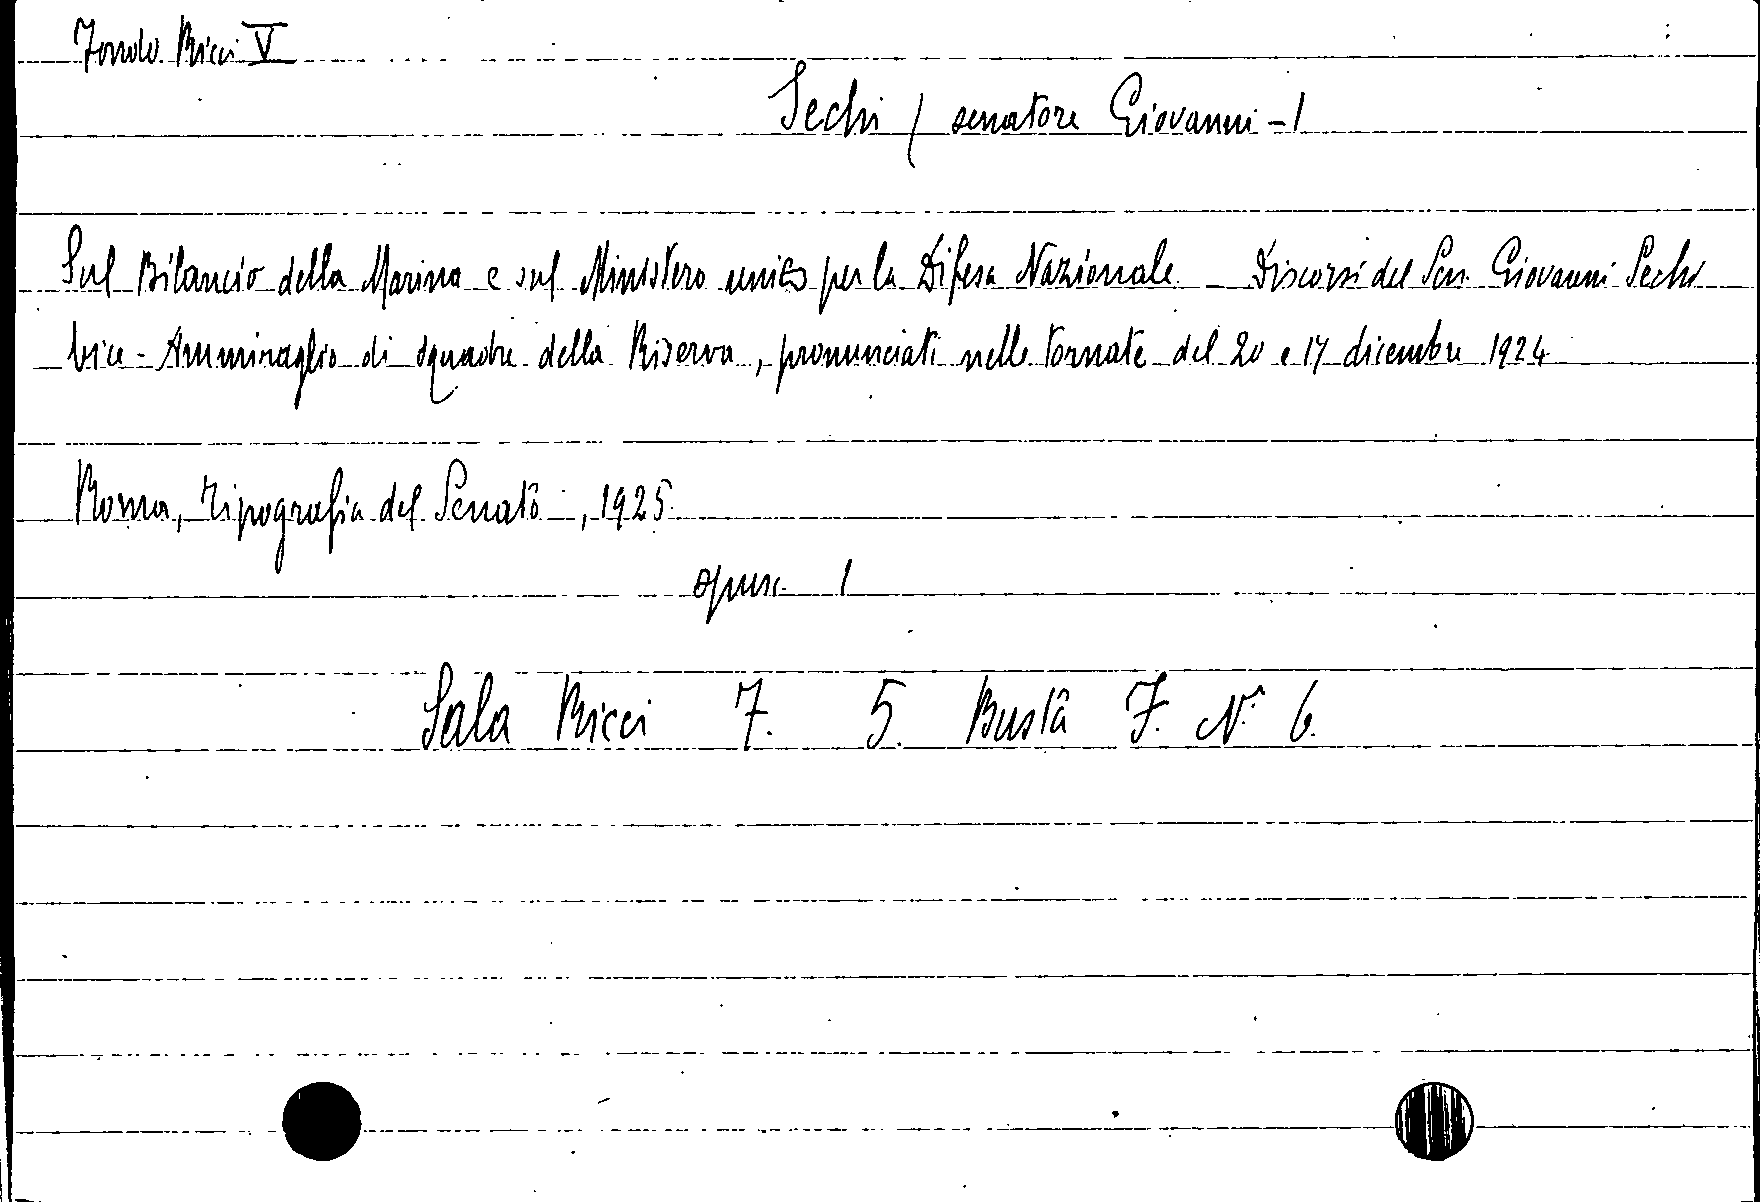 Fondo Ricci V
Sechi / senatore Giovanni - 1
Sul Bilancio della Marina e sul Ministero unico per la Difesa Nazionale - Discorsi del Sen. Giovanni Sechi
Vice-Ammiraglio di squadra della Riserva, pronunciati nelle tornate del 20 e 17 dicembre 1924
Roma, Tipografia del Senato, 1925.
opusc. 1
Sala Ricci 7. 5. Busta F. N° 6.